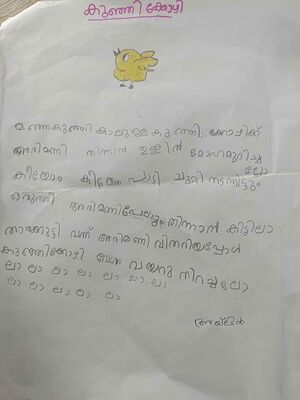 കുഞ്ഞിക്കോഴി
മഞ്ഞകുഞ്ഞികാലുള്ള കുഞ്ഞി കോഴിക്ക്
അരിമണി തിന്നാൻ ഉള്ളിൽ മോഹമുദിച്ചു
ല്ലോ
കിയോം കിയോം പാടി ചുറ്റി നടന്നിട്ടും
ഒരുമണി അരിമണിപ്പോലും തിന്നാൻ കിട്ടീലാ
താക്കുട്ടി വന്ന് അരിമണി വിതറിയപ്പോൾ
കുഞ്ഞിക്കോഴി വേഗം വയറു നിറച്ചലോ
ലാ ലാ ലാ ലാ ലാ ലാ ലാ
ലാ ലാ ലാ ലാ ലാ